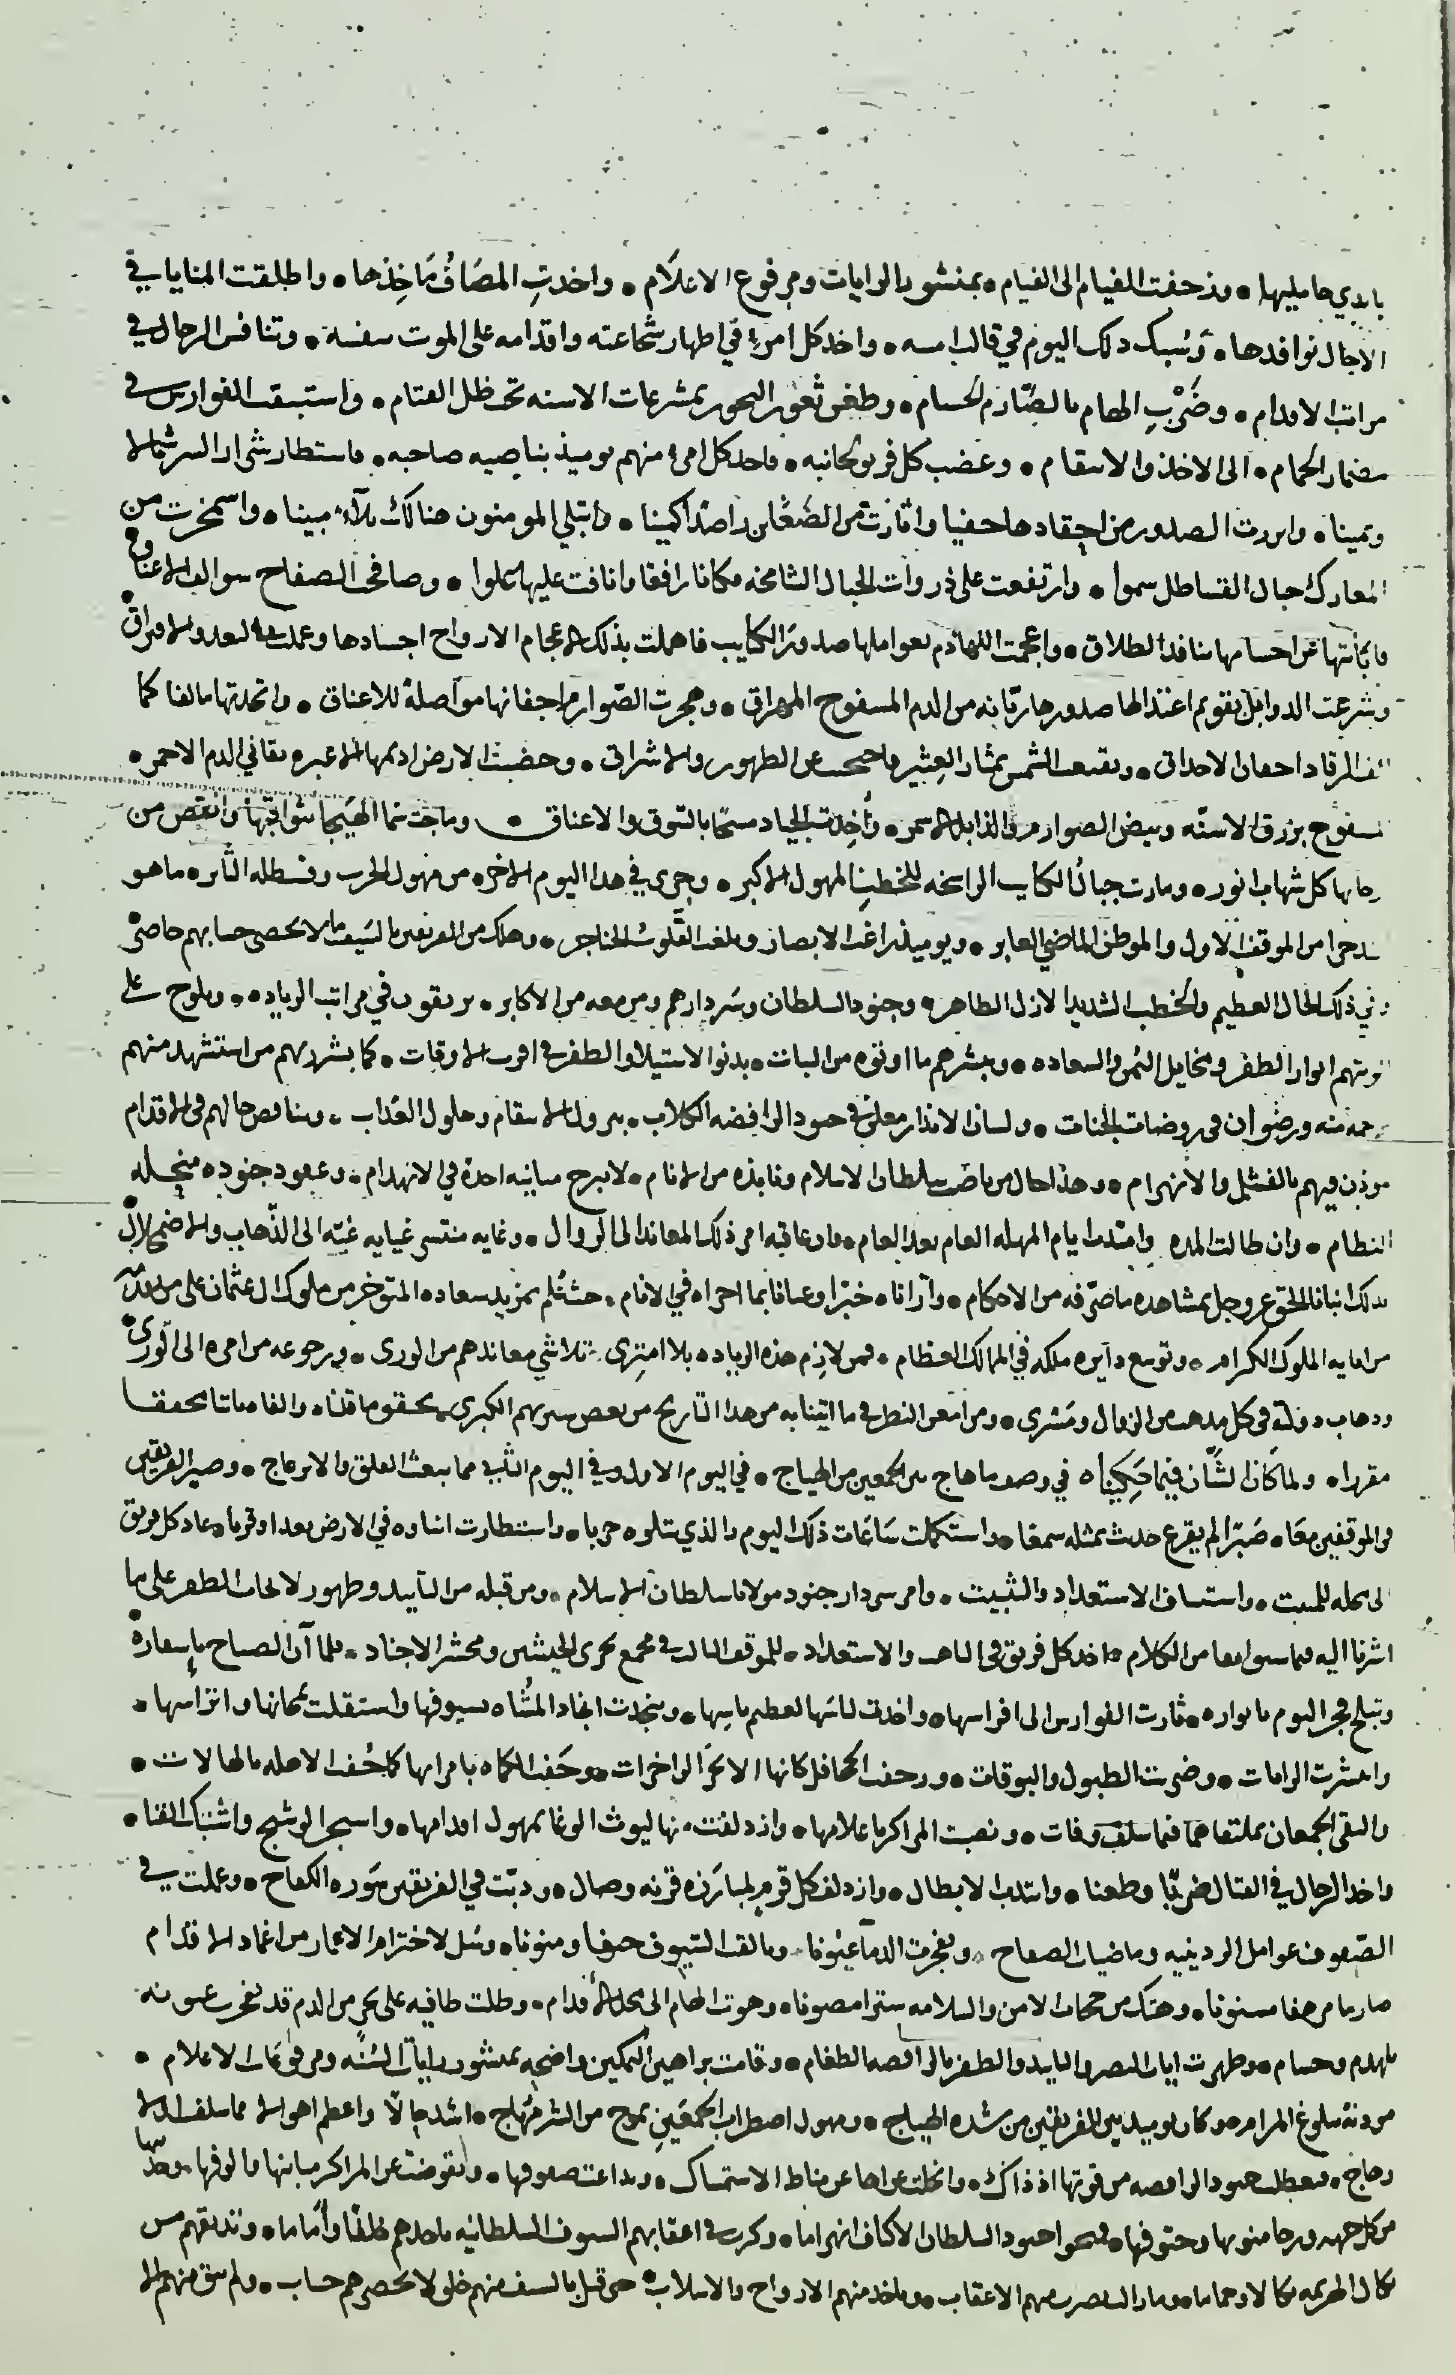 بايدي حامليها ٠ وزحفت الفيام الى الفيام ٠ بمنشور الرايات ومرفوع الاعلام ٠ واخذت المصاف مآخذها ٠ واطلقت المنايا في
الاجال نوافدها ٠ وسبك ذلك اليوم في قالب امسه ٠ واخذ كل امرء في اظهار شجاعته واقدامه على الموت بنفسه ٠ وتنافس الرجال في
مراتب الاقدام ٠ وضرب الهام بالصارم الحسام ٠ وطعن ثغور النحور بمشرعات الاسنه تحت ظل القتام ٠ واستبقت الفوارس في
مضمار الحمام ٠ الى الاخذ والانتقام ٠ وغضب كل فريق لجانبه ٠ فاخذ كل امرء منهم يوميذ بناصيه صاحبه ٠ فاستطار شرار الشر شمالا
ويمينا ٠ وابرزت الصدور من احقادها خفيا واثارت من الضغاين راصدا كمينا ٠ وابتلي المومنون هنالك بلاء مبينا ٠ واسمخرت من
المعارك جبال القساطل سموا ٠ وارتفعت على ذروات الجبال الشامخه مكانا رافعا وانافت عليها علوا ٠ وصافحت الصفاح سوالف الاعناق
فابانتها عن اجسامها بنافذ الطلاق ٠ واعجمت اللهاذم بعواملها صدور الكتايب فاهملت بذلك الاعجام الارواح اجسادها وعملت البعد والافتراق
وشرعت الذوابل بقويم اعتدالها صدورها ريانه من الدم المسفوح المهراق ٠ وهجرت الصوارم اجفانها مواصلة للاعناق ٠ واتخذتها مالفا كما
الف الرقاد اجفان الاحداق ٠ وتقنعت الشمس بمثار العثير فاحتجبت عن الظهور والاشراق ٠ وخضبت الارض اديمها الاغبر بقاني الدم الاحمر ٠
المسفوح بزرق الاسنه وبيض الصوارم والذابل الاسمر ٠ واخذت الجياد مسحا بالسوق والاعناق ٠ وماجت سما الهيجا بثواقبها وانقض من
رجلها كل شهاب انور ٠ ومارت جبال الكتايب الراسخه للخطب المهول الاكبر ٠ وجرى في هذا اليوم الاخر ٠ من مهول الحرب وقسطله الثاير ٠ ماهو
اشد حرا من الموقف الاول والموطن الماضي الغابر ٠ ويوميذ زاغت الابصار وبلغت القلوب الحناجر ٠ وهلك من الفريقين بالسيف ما لا يحصي حسابهم حاصر
وفي ذلك الحال العظيم والخطب الشديد الازل الظاهر ٠ وجنود السلطان وسردارهم ومن معه من الاكابر ٠ يرتقون في مراتب الزياده ٠ ويلوح على
الويتهم انوار الظفر ومخايل اليمن والسعاده ٠ ويبشرهم ما اوتوه من الثبات ٠ بدنو الاستيلا والظفر في اقرب الاوقات ٠ كما يبشر ربهم من استشهد منهم
برحمة منه ورضوان في روضات الجنات ٠ ولسان الانذار معلن في جنود الرافضه الكلاب ٠ بنزول الانتقام وحلول العذاب ٠ وتناقص حالهم في الاقدام
موذن فيهم بالفشل والانهزام ٠ وهذا حال من ناصب سلطان الاسلام ونابذه من الانام ٠ لا تبرح مبانيه اخذة في الانهدام ٠ وعقود جنوده منحله
النظام ٠ وان طالت المده وامتدت ايام المهله العام بعد العام ٠ وان عاقبه امر ذلك المعاند الى الزوال ٠ وغايه منتسر غيايه غيه الى الذهاب والاضمحلال
بذلك انبانا الحق عز وجل بمشاهده ما صرفه من الاحكام ٠ وارانا ٠ خبرا وعيانا بما اجراه في الانام ٠ حيث علم بمزيد سعاده المتوخر من ملوك ال عثمان على من تقدمه
من ابايه الملوك الكرام ٠ وتوسع دايره ملكه في الممالك العظام ٠ فمن لازم هذه الزياده بلا امتري ٠ تلاشي معاندهم من الورى ٠ ورجوعه من امره الى الورى
وذهاب دولته في كل مذهب من الزوال ومسرى ٠ ومن امعن النظر في ما اتينا به من هذا التاريخ من بعض سيرتهم الكبرى ٠ تحقق ما قلناه والفاه ثابتا محققا
مقررا ٠ ولما كان الشان فيما حكيناه في وصف ما هاج بين الجمعين من الهياج ٠ في اليوم الاول وفي اليوم الثاني مما يبعث القلق والانزعاج ٠ وصبر الفريقين
في الموقفين معا ٠ صبرا لم يقرع حديث بمثله سمعا ٠ واستكملت ساعات ذلك اليوم والذي يتلوه حربا ٠ واستطارت انباوه في الارض بعدا وقربا ٠ عاد كل فريق
الى محله للمبيت ٠ واستانف الاستعداد والتثبيت ٠ وامر سردار جنود مولانا سلطان الاسلام ٠ ومن قبله من التاييد وظهور لايحات الظفر على ما
اشرنا اليه فيما سبق انفا من الكلام فاخذ كل فريق في التاهب والاستعداد ٠ للموقف الثالث في مجمع بحرى الجيشين ومحشر الاجناد ٠ فلما ان الصباح باسفاره
وتبلج فجر اليوم بانواره ٠ ثارت الفوارس الى افراسها ٠ واخذت للباسها لعظيم باسها ٠ وتنجدت انجاد المشاه بسيوفها واستقلت بمجانها واتراسها ٠
وانتشرت الرايات ٠ وضربت الطبول والبوقات ٠ وزحفت الجحافل كانها الابحر الزاخرات ٠ وحفت الكماه بامرايها كما حفت الاهله بالهالات ٠
والتقى الجمعان بملتقاهما فيما سلف وفات ٠ ونصبت المراكز باعلامها ٠ وازدلفت منها ليوث الوغا بمهول اقدامها ٠ واستجر الوشيج واشتبك القنا ٠
واخذ الرجال في القتال ضربا وطعنا ٠ وانتدب الابطال ٠ وازدلف كل قرم لمبارزة قرنه وصال ٠ ودبت في الفريقين سوره الكفاح ٠ وعملت في
الصفوف عوامل الردينيه وماضيات الصفاح ٠ وتفجرت الدما عيونا ٠ وتالفت السيوف حتوفا ومنونا ٠ وسل لاخترام الاعمار من اغماد الاقدام
صارما مرهفا مسنونا ٠ وهتك من حجاب الامن والسلامه سترا مصونا ٠ وهوت الهام الى محل الاقدام ٠ وظلت طافيه على بحر من الدم قد تفجرت عيونه
بلهذم وحسام ٠ وظهرت ايات النصر والتاييد والظفر بالرافضه الطغام ٠ وقامت براهين التمكين واضحه بمنشور رايات السنه ومرفوعات الاعلام ٠
من دنو بلوغ المرام وكان يوميذ بين الفريقين من شده الهياج ٠ ومهول اضطراب الجمعين بموج من الشر مهاج ٠ اشد جالا واعظم اهوالا مما سلف
وهاج ٠ فتعطلت جنود الرافضه من قوتها اذ ذاك ٠ وانحلت عراها عن مناط الاستمساك ٠ وتداعت صفوفها ٠ وتقوضت عن المراكز مبانيها ومالوفها
من كل جهه ورجا منونها وحتوفها ٠ فمنحوا جنود السلطان الاكتاف انهزاما ٠ وكرت في اعقابهم السيوف السلطانيه تاخذهم خلفا واماما ٠ وتذيقهم من
نكال الهزيمه نكالا وحماما ٠ ومازال النصر منهم الاعقاب ٠ وياخذ منهم الارواح والاسلاب ٠ حتى قتل بالسيف منهم خلق لا يحصرهم حساب ٠ ولم يبق منهم الا